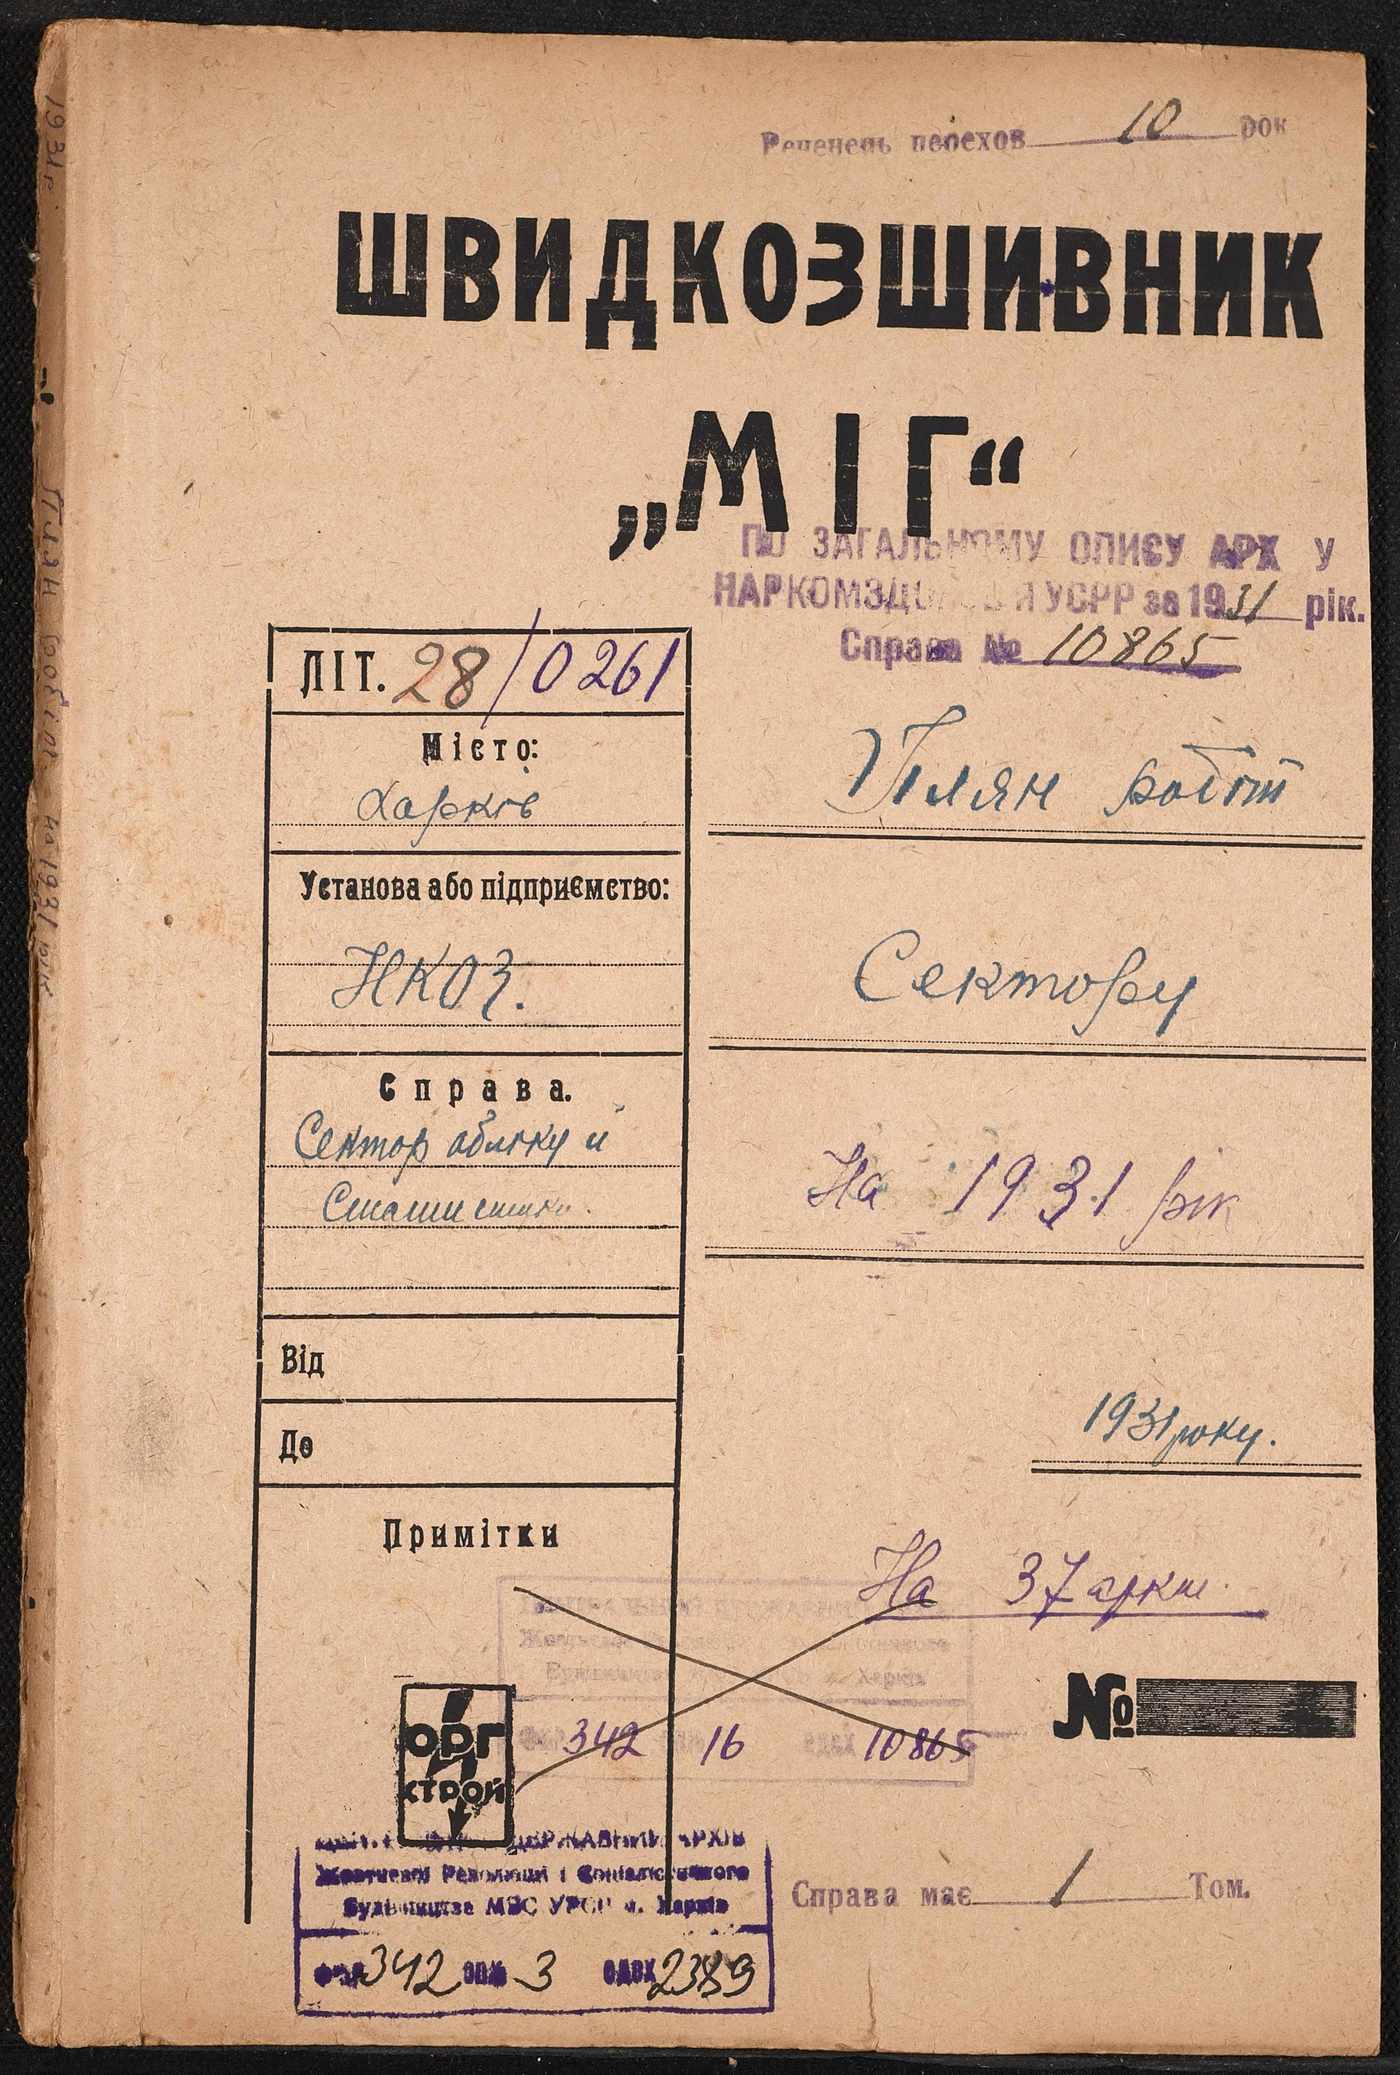 Реченець перехов 10 рок
ШВИДКОЗШИВНИК
„МІГ“
ПО ЗАГАЛЬНОМУ ОПИСУ АРХ У
НАРКОМЗДОРОВ Я УСРР за 1931 рік.
Справа № 10865
ЛІТ. 28/0261
Місто:
Харків
Установа або підприємство:
НКОЗ.
Справа.
Сектор обліку й
Статистики.
Від
До
Примітки
Плян робіт
Сектору
На 1931 рік
1931 року.
На 37 аркш.
№
342 16 10865
ОРГ
СТРОЙ
ДЕРЖАВНИЙ АРХІВ
Жовтневої Революції і Соціалістичного
Будівництва МВС УРСР м. Харків
фонд 342 опис 3 одзх 2389
Справа має 1 Том.
1931 р. План робіт на 1931 рік